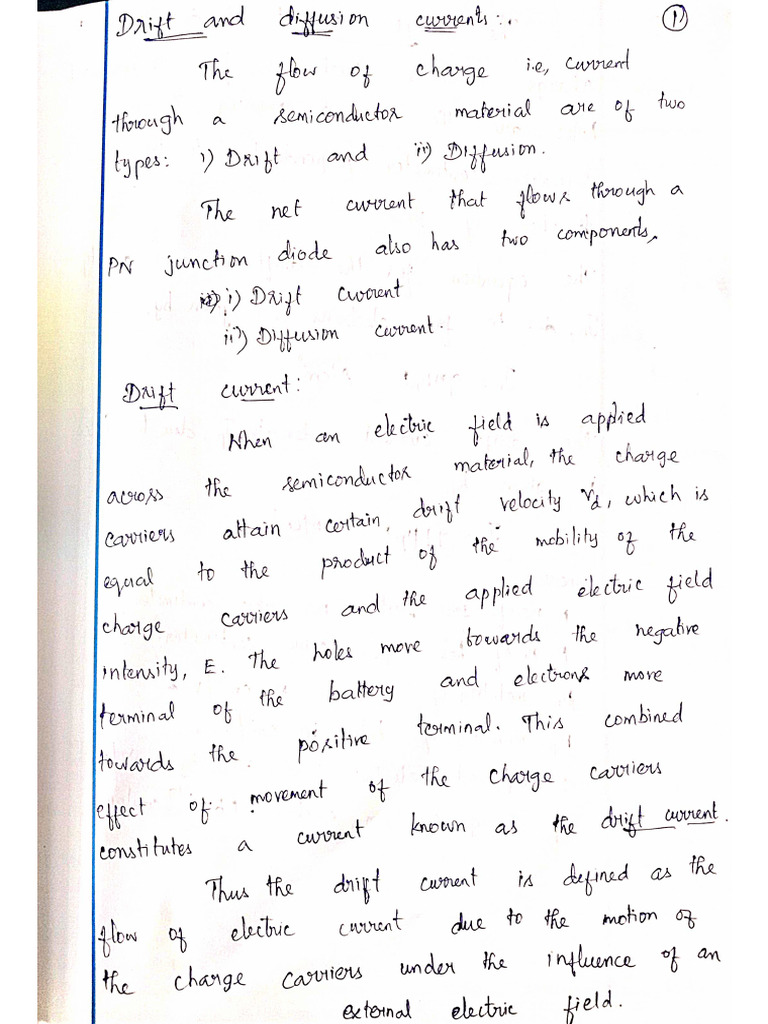 Drift and diffusion currents:. 1)
The flow of charge i.e, current
through a semiconductor material are of two
types: i) Drift and ii) Diffusion.
The net current that flows through a
PN junction diode also has two components,
i) Drift current
ii) Diffusion current.
Drift current:
When an electric field is applied
across the semiconductor material, the charge
carriers attain certain, drift velocity Vd, which is
equal to the product of the mobility of the
charge carriers and the applied electric field
intensity, E. The holes move towards the negative
terminal of the battery and electrons move
towards the positive terminal. This combined
effect of movement of the charge carriers
constitutes a current known as the drift current.
Thus the drift current is defined as the
flow of electric current due to the motion of
the charge carriers under the influence of an
external electric field.